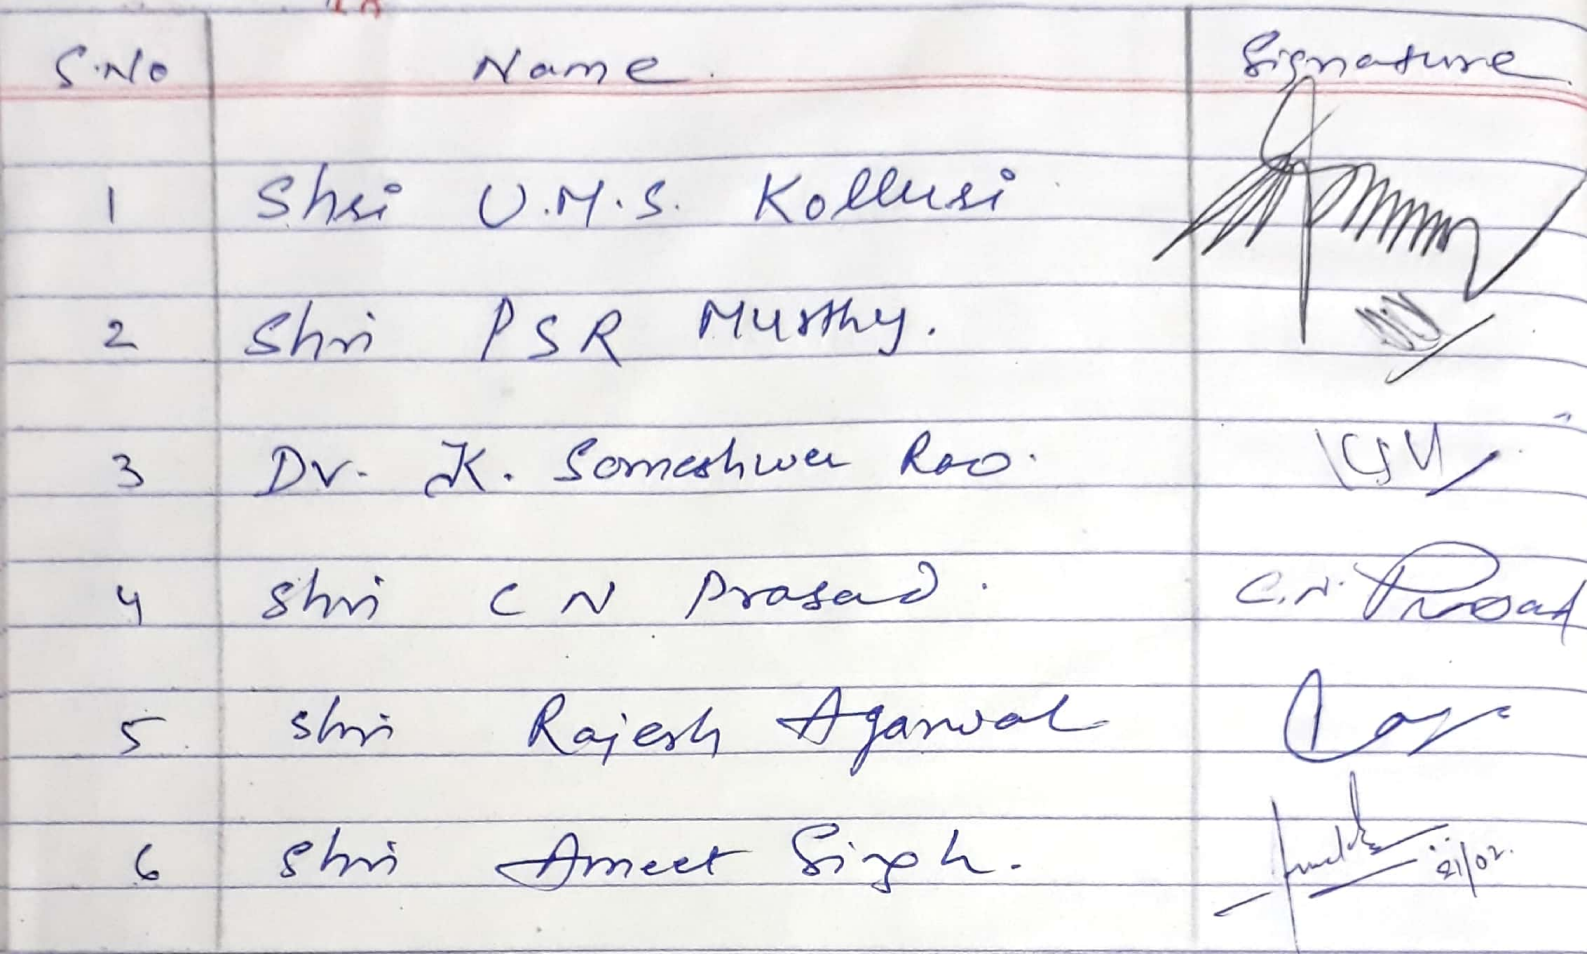 S.No Name. Signature
1 Shri U.M.S. Kolluri
2 Shri PSR Murthy.
3 Dr. K. Someshwer Rao.
4 Shri C N Prasad. C.N. Prasad
5 Shri Rajesh Agarwal
6 Shri Ameet Singh. 21/02.